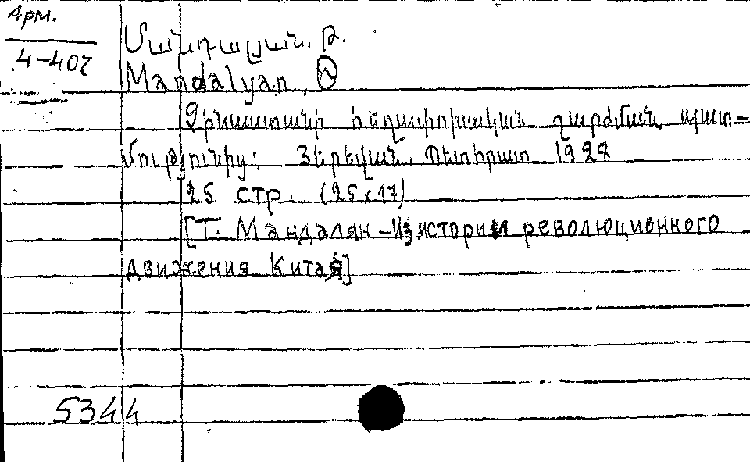 Арм.
4-407
Մանդալյան, Թ.
Mandalyan,
Չինաստանի հեղափոխական շարժման պատ-
մությունից: Յերեվան, Պետհրատ 1927
25 стр. (25x17)
[Т. Мандалян - Из истории революционного
движения Китая]
5344